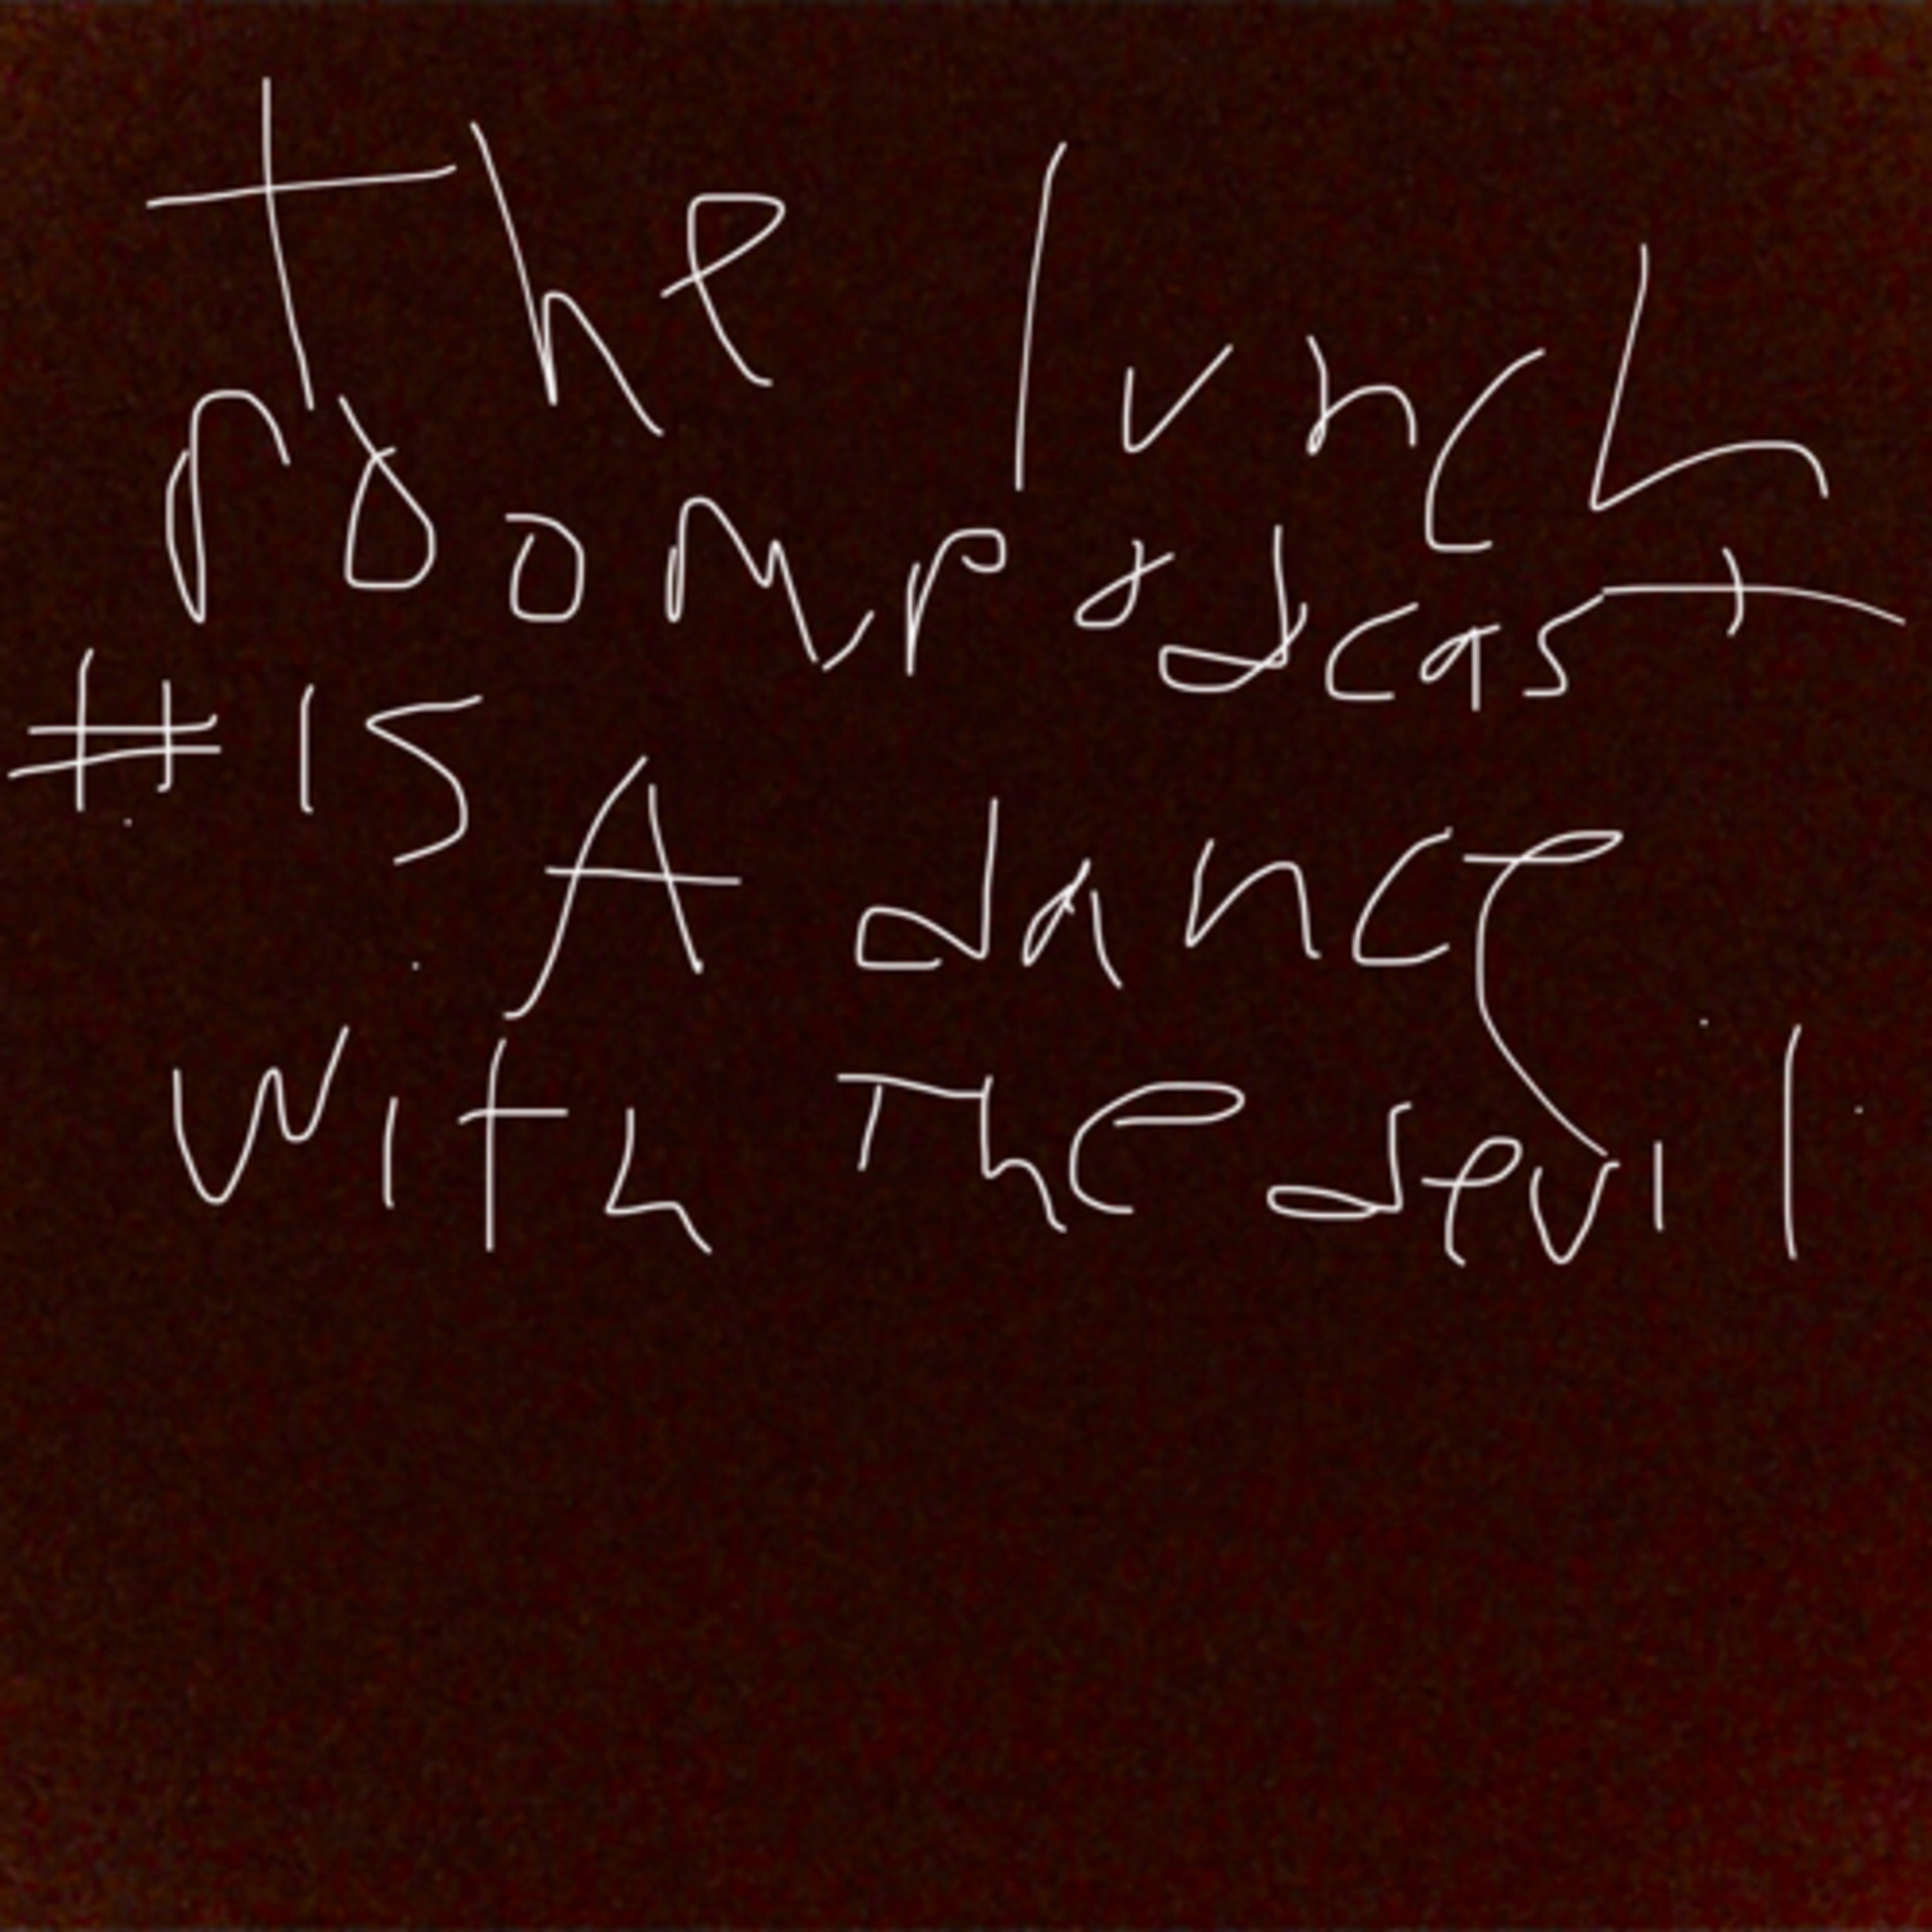 The lunch
room podcast
#15 A dance
with The devil